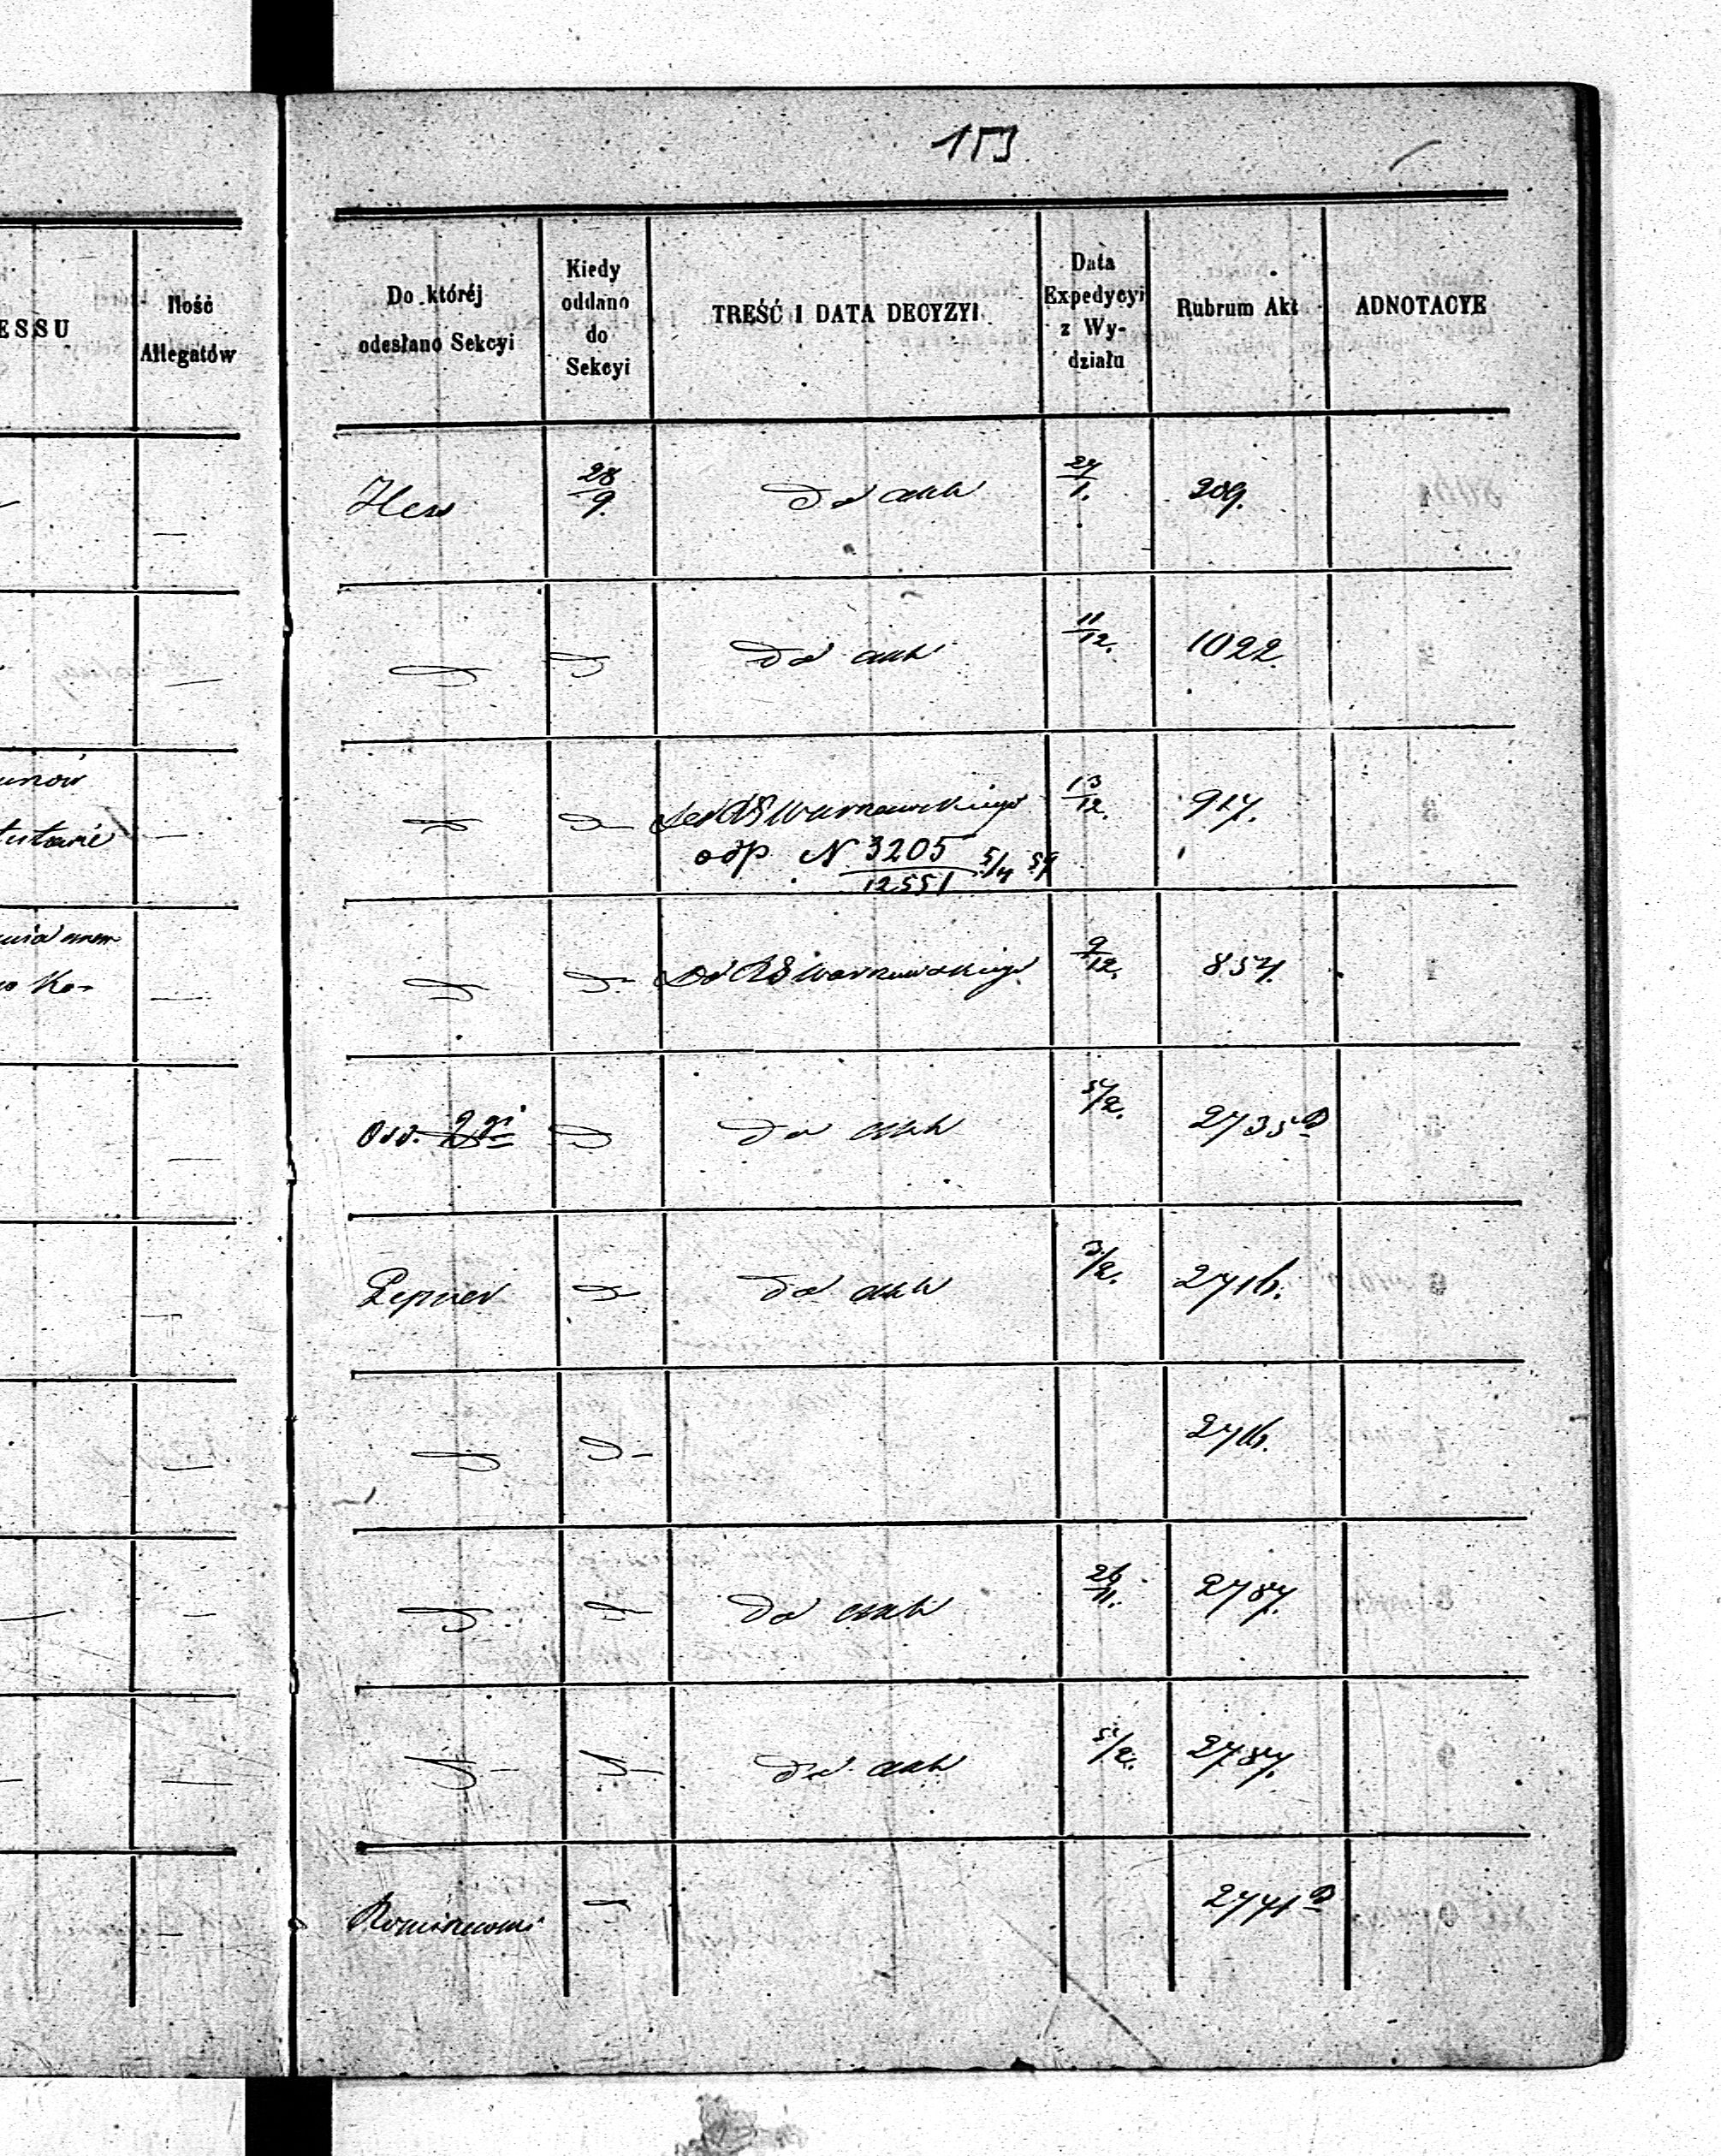 153
ESSU
Ilość
Allegatów
Do któréj
odesłano Sekcyi
Kiedy
oddano
do
Sekcyi
TREŚĆ I DATA DECYZYI
Data
Expedycyi
z Wy-
działu
Rubrum Akt
ADNOTACYE
Hess 28/9. Do akt 27/1. 209.
Do akt 11/12. 1022.
Do RG Warszawskiego 13/12. 917.
odp. N 3205/12551 5/4 59
Do RG Warszawskiego 9/12. 857.
Do akt 5/2. 2735
Lepner Do akt 3/2. 2716.
2716.
Do akt 26/11. 2787.
Do akt 5/2. 2787.
2771